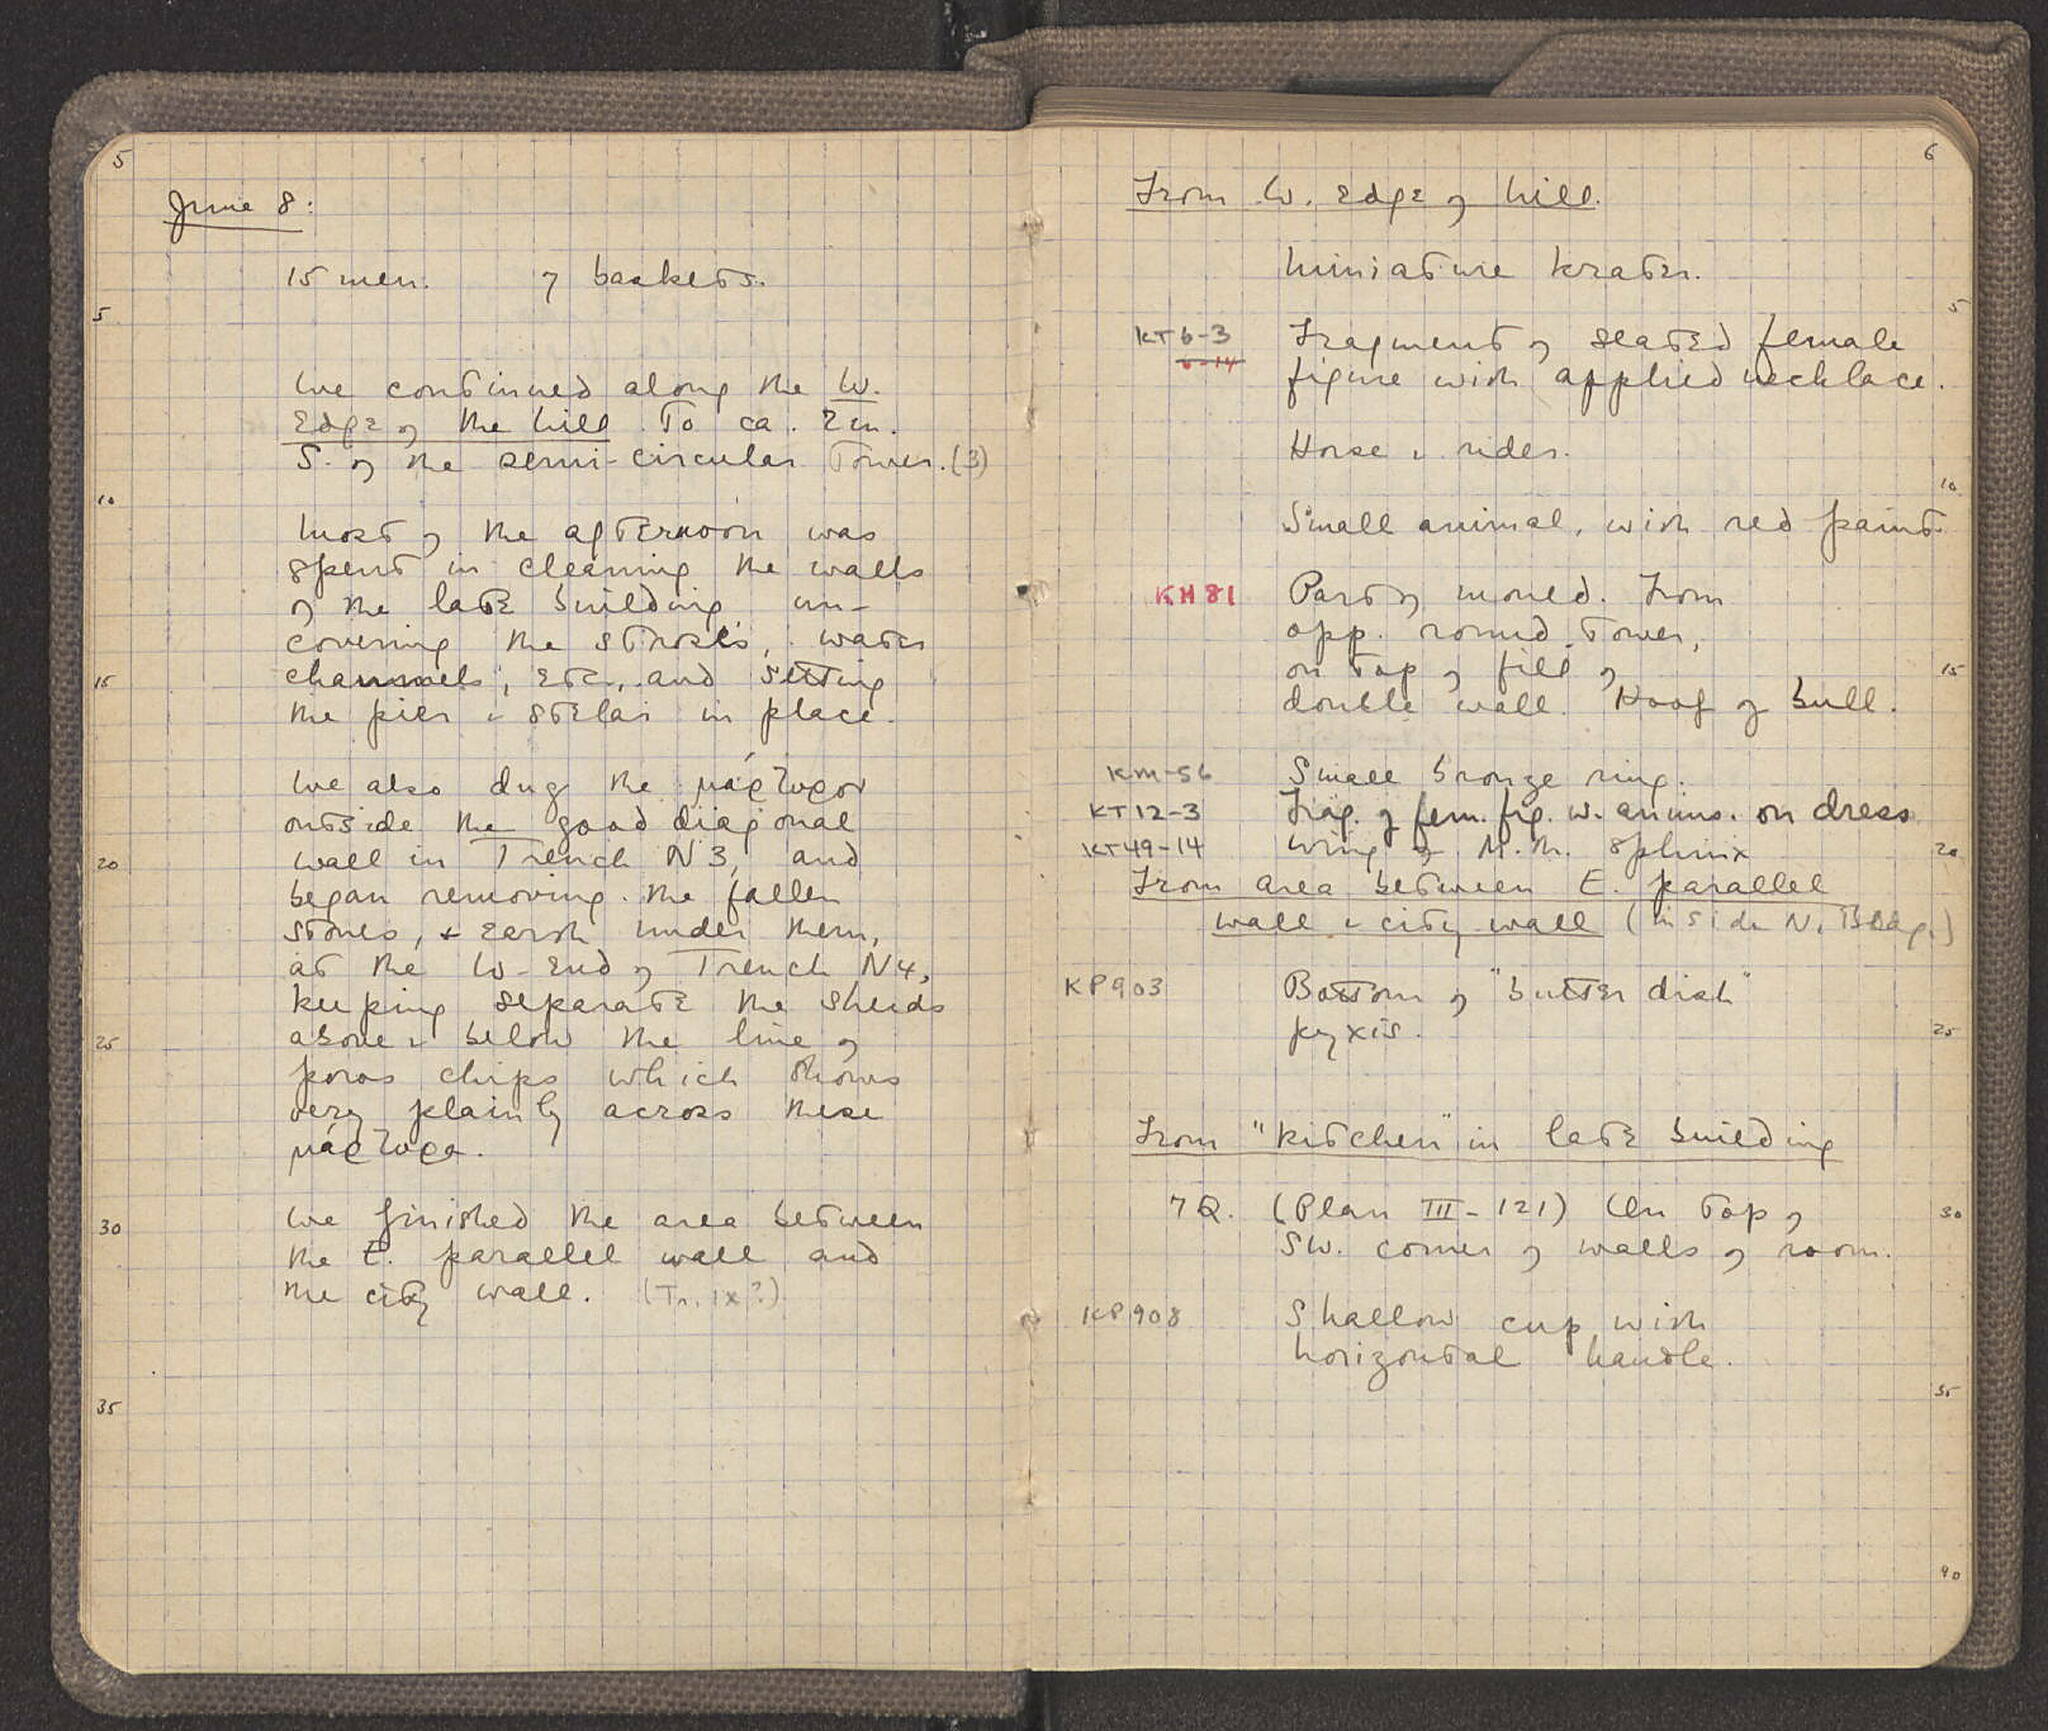 5
June 8:
15 men. 7 baskets.
5
We continued along the W.
Edge of the hill to ca. 2 m.
S. of the semi-circular Tower. (3)
10
Most of the afternoon was
spent in cleaning the walls
of the late building un-
covering the
water
15
channels, etc., and setting
the pier & stelai in place.
We also dug the μάρτυρα
outside the good diagonal
20
wall in Trench N3, and
began removing the fallen
stones, & earth under them,
at the W-end of Trench N4,
keeping separate the sherds
25
above & below the line of
poros chips which shows
very plainly across these
μάρτυρα.
30
We finished the area between
the E. parallel wall and
the city wall. (Tr. IX?)
35
6
From W. Edge of hill.
Miniature krater.
5
KT 6-3 Fragment of seated female
6-14 figure with applied necklace.
Horse & rider.
10
Small animal, with red paint.
KH 81 Part of mould. From
opp. round Tower,
on top of fill of
15
double wall. Hoof of bull.
KM-56 Small bronze ring.
KT 12-3 Frag. of fem. fig. w. anims. on dress
KT 49-14 Wing of H.M. sphinx
20
From area between E. parallel
wall & city wall (inside N. Bldg.)
KP 903 Bottom of "butter dish"
25
pyxis.
From "kitchen" in late building
7Q. (Plan III-121) On top of
30
SW. corner of walls of room.
KP 908 Shallow cup with
horizontal handle.
35
40